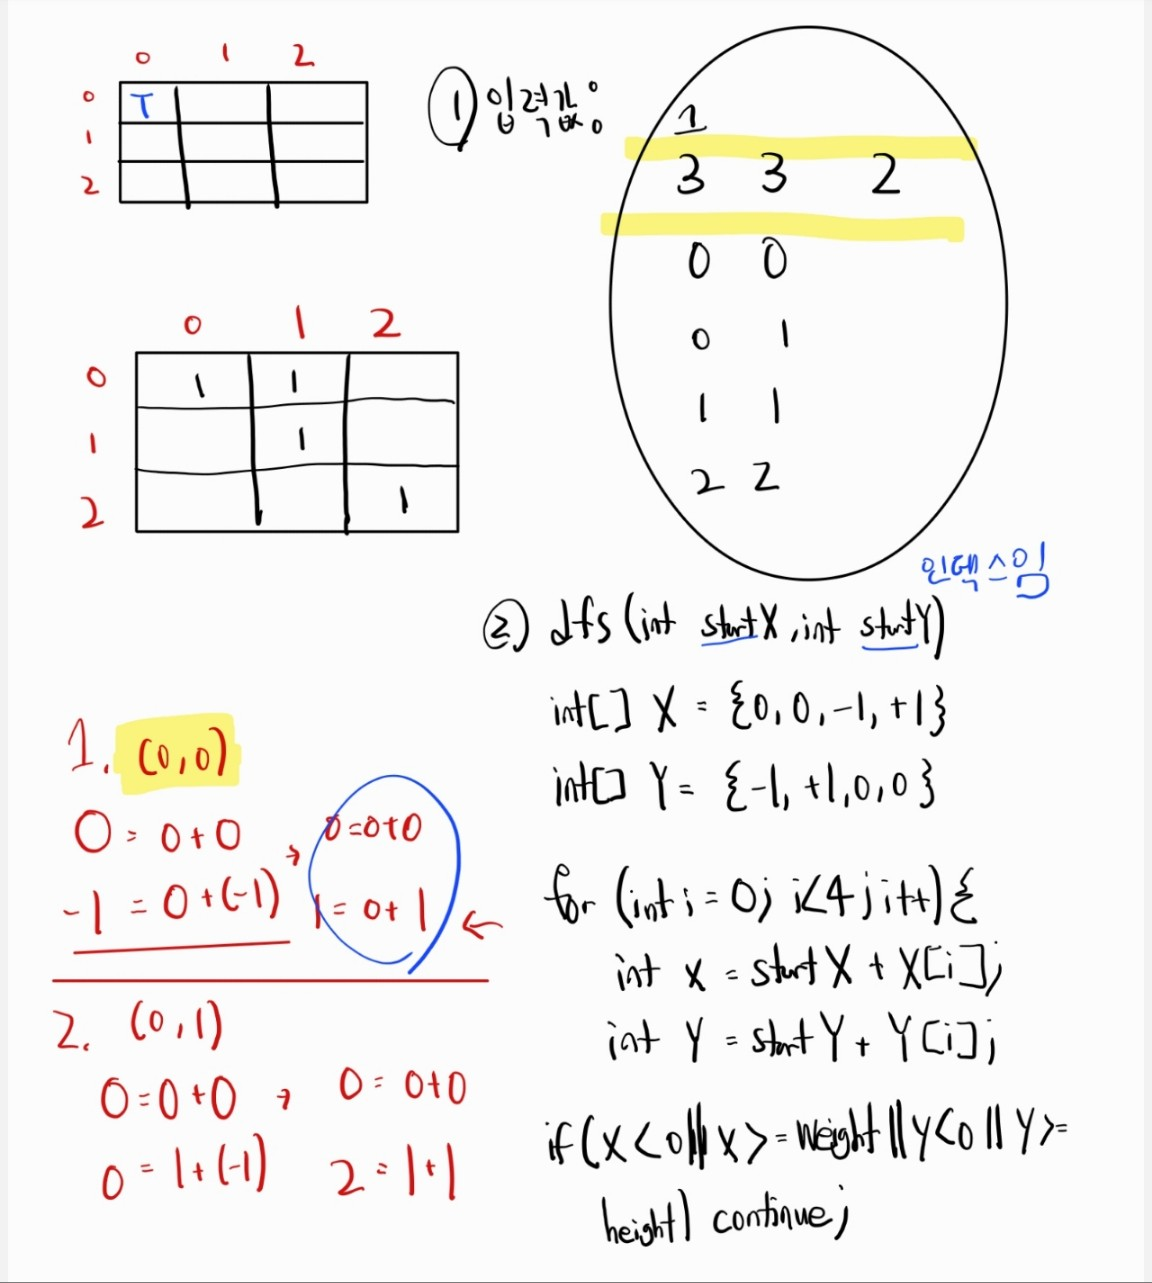 0 1 2
0 T
1
2
① 입력값:
1
3 3 2
0 0
0 1
1 1
2 2
0 1 2
0 1 1
1 1
2 1
인덱스임
② dfs (int startX, int startY)
int[] X = {0, 0, -1, +1}
int[] Y = {-1, +1, 0, 0}
for (int i = 0; i<4; i++) {
int x = startX + X[i];
int Y = startY + Y[i];
if (X < 0 || X >= Weight || Y < 0 || Y >=
height) continue;
1. (0,0)
0 = 0 + 0 , 0 = 0+0
-1 = 0 + (-1) 1 = 0+1 ←
2. (0,1)
0 = 0 + 0 , 0 = 0+0
0 = 1 + (-1) 2 = 1+1